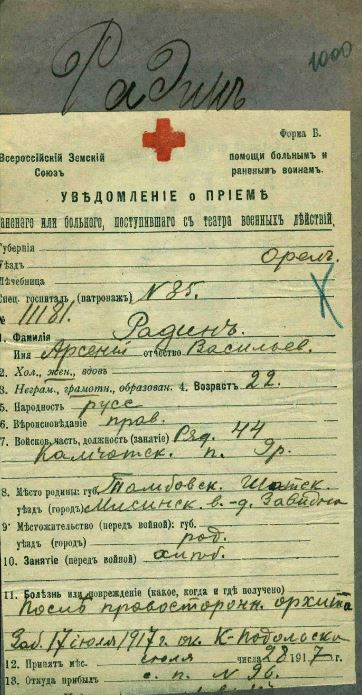 1000
Радинъ
Форма Б.
Всероссійскій Земскій Союзъ
помощи больнымъ и раненымъ воинамъ.
УВѢДОМЛЕНІЕ о ПРІЕМѢ
раненаго или больного, поступившаго съ театра военныхъ дѣйствій,
Губернія
Уѣздъ Орелъ.
Лечебница
Спец. госпиталь (патронажъ) N 85.
№ 11181.
1. Фамилія Радинъ
Имя Арсеній отчество Васильев.
2. Хол., жен., вдовъ
3. Неграм., грамотн., образован. 4. Возрастъ 22.
5. Народность русс
6. Вѣроисповѣданіе прав.
7. Войсков. часть, должность (занятіе) Ряд. 44
Камчатск. п.
8. Мѣсто родины: губ. Тамбовск.
уѣздъ (городъ)
9. Мѣстожительство (передъ войной): губ.
уѣздъ (городъ)
10. Занятіе (передъ войной)
11. Болѣзнь или поврежденіе (какое, когда и гдѣ получено)
правосторонн. орхита
Заб. 17 іюля 1917 г. ок. К-Подольска
12. Принятъ мѣс. іюля числа 28 1917 г.
13. Откуда прибылъ с. п. N 96.